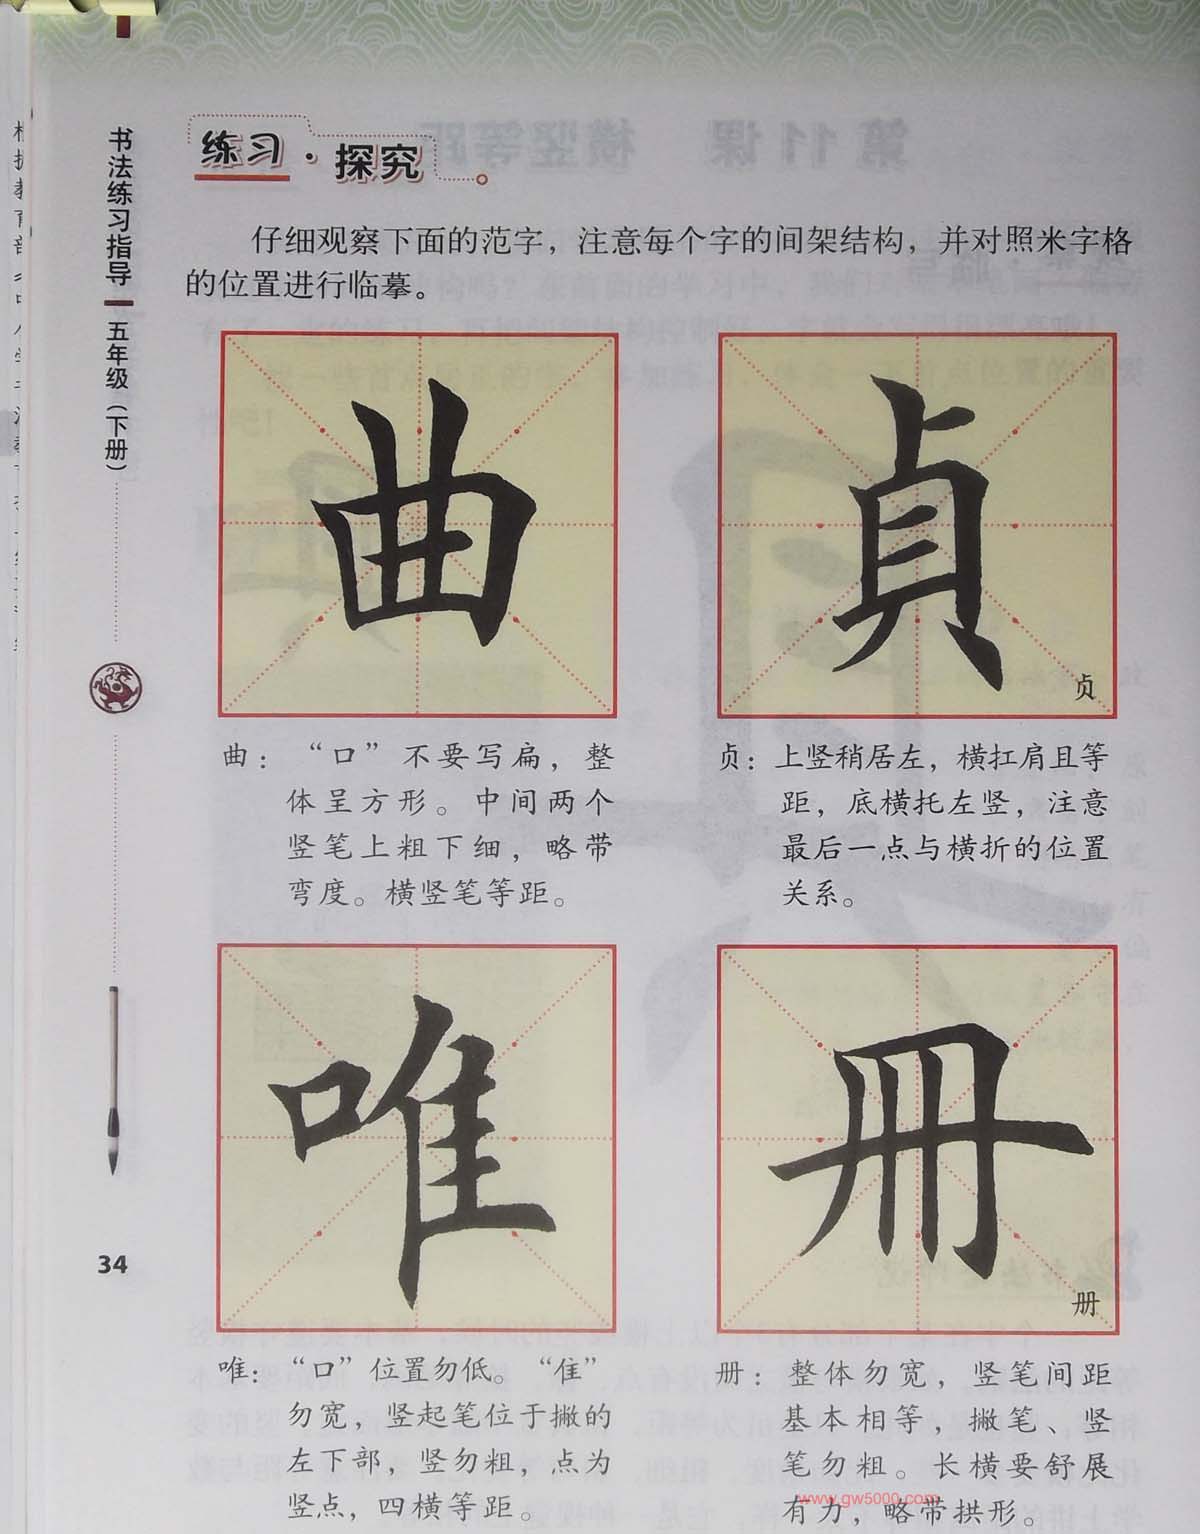 书法练习指导
五年级（下册）
34
练习·探究
仔细观察下面的范字，注意每个字的间架结构，并对照米字格
的位置进行临摹。
曲
貞
贞
曲：“口”不要写扁，整
体呈方形。中间两个
竖笔上粗下细，略带
弯度。横竖笔等距。
贞：上竖稍居左，横扛肩且等
距，底横托左竖，注意
最后一点与横折的位置
关系。
唯
冊
册
唯：“口”位置勿低。“隹”
勿宽，竖起笔位于撇的
左下部，竖勿粗，点为
竖点，四横等距。
册：整体勿宽，竖笔间距
基本相等，撇笔、竖
笔勿粗。长横要舒展
有力，略带拱形。
www.gw5000.com